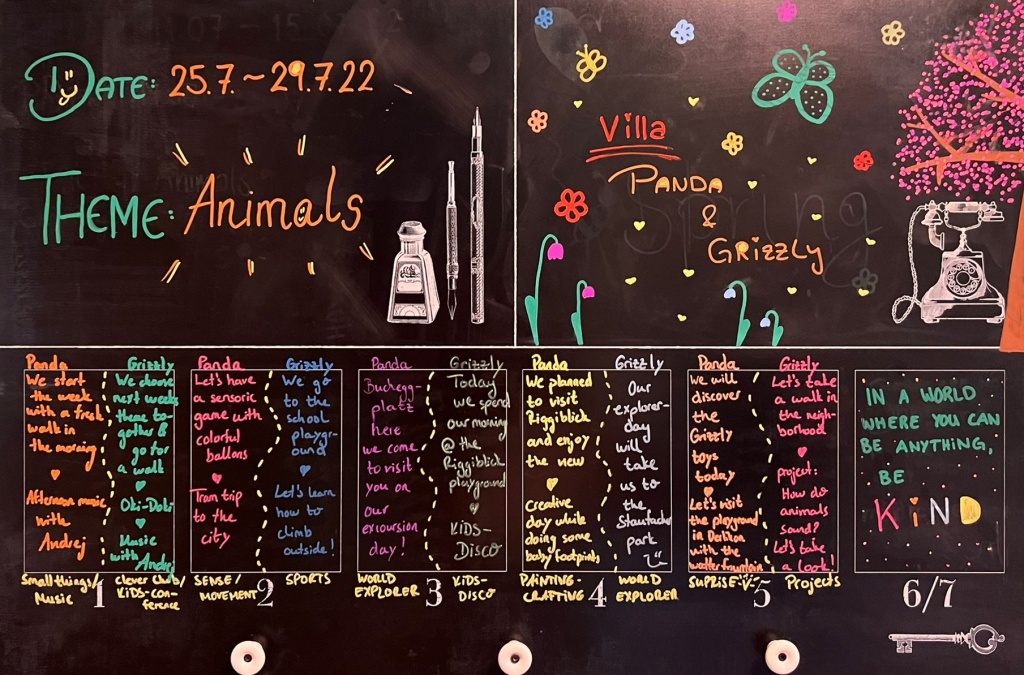 DATE: 25.7. ~ 29.7.22
THEME: Animals
Villa
PANDA
&
GRIZZLY
Panda
We start
the week
with a fresh
walk in
the morning
Afternoon music
with
Andrej
Small things/
Music
Grizzly
We choose
next weeks
theme to-
gether &
go for
a walk
Oki-Doki
Music
with Andrej
Clever Club/
KiDS-con-
ference
1
Panda
Let's have
a sensoric
game with
colorful
ballons
Tram trip
to the
city
SENSE/
MOVEMENT
Grizzly
We go
to the
school
playgr-
ound
Let's learn
how to
climb
outside!
SPORTS
2
Panda
Buchegg-
platz
here
we come
to visit
you on
our
excursion
day!
WORLD
EXPLORER
Grizzly
Today
we spend
our morning
@ the
Riggiblick
playground
KiDS-
DiSCO
KiDS-
DiSCO
3
Panda
We planned
to visit
Riggiblick
and enjoy
the view
Creative
day while
doing some
baby footprints
PAINTING-
CRAFTING
Grizzly
Our
explorer-
day
will
take
us to
the
Stauffacher
park
WORLD
EXPLORER
4
Panda
We will
discover
the
Grizzly
toys
today
Let's visit
the playground
in Oerlikon
with the
watter fountain
SUPRISE
Grizzly
Let's take
a walk in
the neigh-
borhood
project:
How do
animals
sound?
Let's take
a look!
Projects
5
IN A WORLD
WHERE YOU CAN
BE ANYTHING,
BE
KiND
6/7